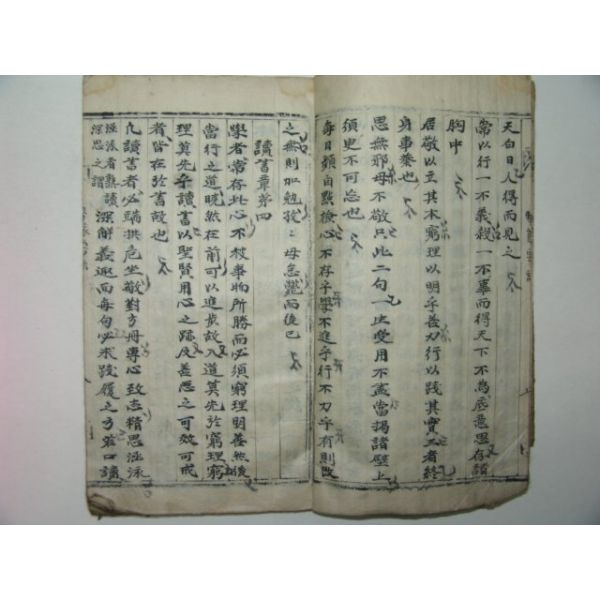 天白日人得而見之
常以行一不義殺一不辜而得天下不爲底意思存諸
胸中
居敬以立其本窮理以明乎善力行以踐其實三者終
身事業也
思無邪毋不敬只此二句一生受用不盡當揭諸壁上
須臾不可忘也
每日頻自點檢心不存乎學不進乎行不力乎有則改
之無則加勉孜孜毋怠斃而後已
讀書章第四
學者常存此心不被事物所勝而必須窮理明善然後
當行之道曉然在前可以進步故入道莫先於窮理窮
理莫先乎讀書以聖賢用心之跡及善惡之可效可戒
者皆在於書故也
凡讀書者必端拱危坐敬對方冊專心致志精思涵泳
涵泳者熟讀深思之謂
深解義趣而每句必求踐履之方若口讀